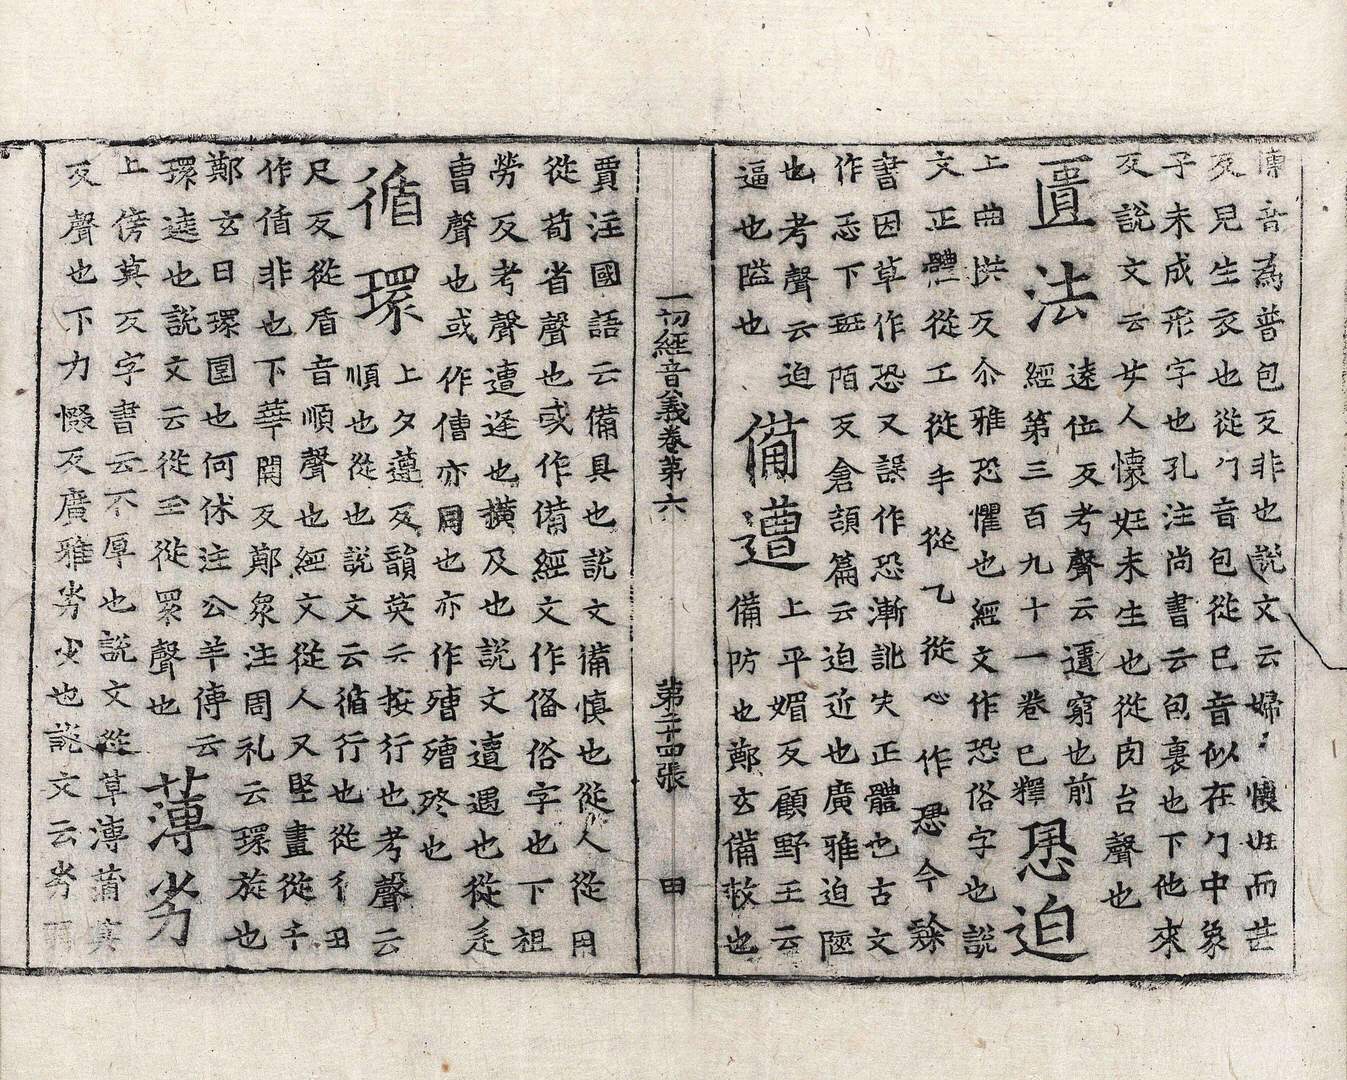 傳音為普包反非也說文云婦〻懷妊而芒
反皃生衣也從勹音包從巳音似在勹中象
子未成形字也孔注尚書云包裹也下他來
反說文云女人懷妊未生也從肉台聲也
匱法
逵位反考聲云匱窮也前
經第三百九十一卷已釋
恐迫
上曲拱反尒雅恐懼也經文作恐俗字也說
文正體從工從手從乙從心作恐今隸
書因草作恐又誤作恐漸訛失正體也古文
作㤟下班陌反倉頡篇云迫近也廣雅迫陿
也考聲云迫
逼也隘也
備遭
上平媚反顧野王云
備防也鄭玄備救也
一切經音義卷第六
第二十四張
田
賈注國語云備具也說文備慎也從人從用
從苟省聲也或作僃經文作俻俗字也下祖
勞反考聲遭逢也擴及也說文遭遇也從辵
曹聲也或作傮亦同也亦作殰殰終也
循環
上夕遵反韻英云按行也考聲云
順也從也說文云循行也從彳田
尺反從盾音順聲也經文從人又堅畫從千
作偱非也下華關反鄭眾注周礼云環旋也
鄭玄曰環圍也何休注公羊傳云
環遶也說文云從玉從睘聲也
薄劣
上傍莫反字書云不厚也說文從草溥蒲莫
反聲也下力惙反廣雅劣少也說文云劣弱